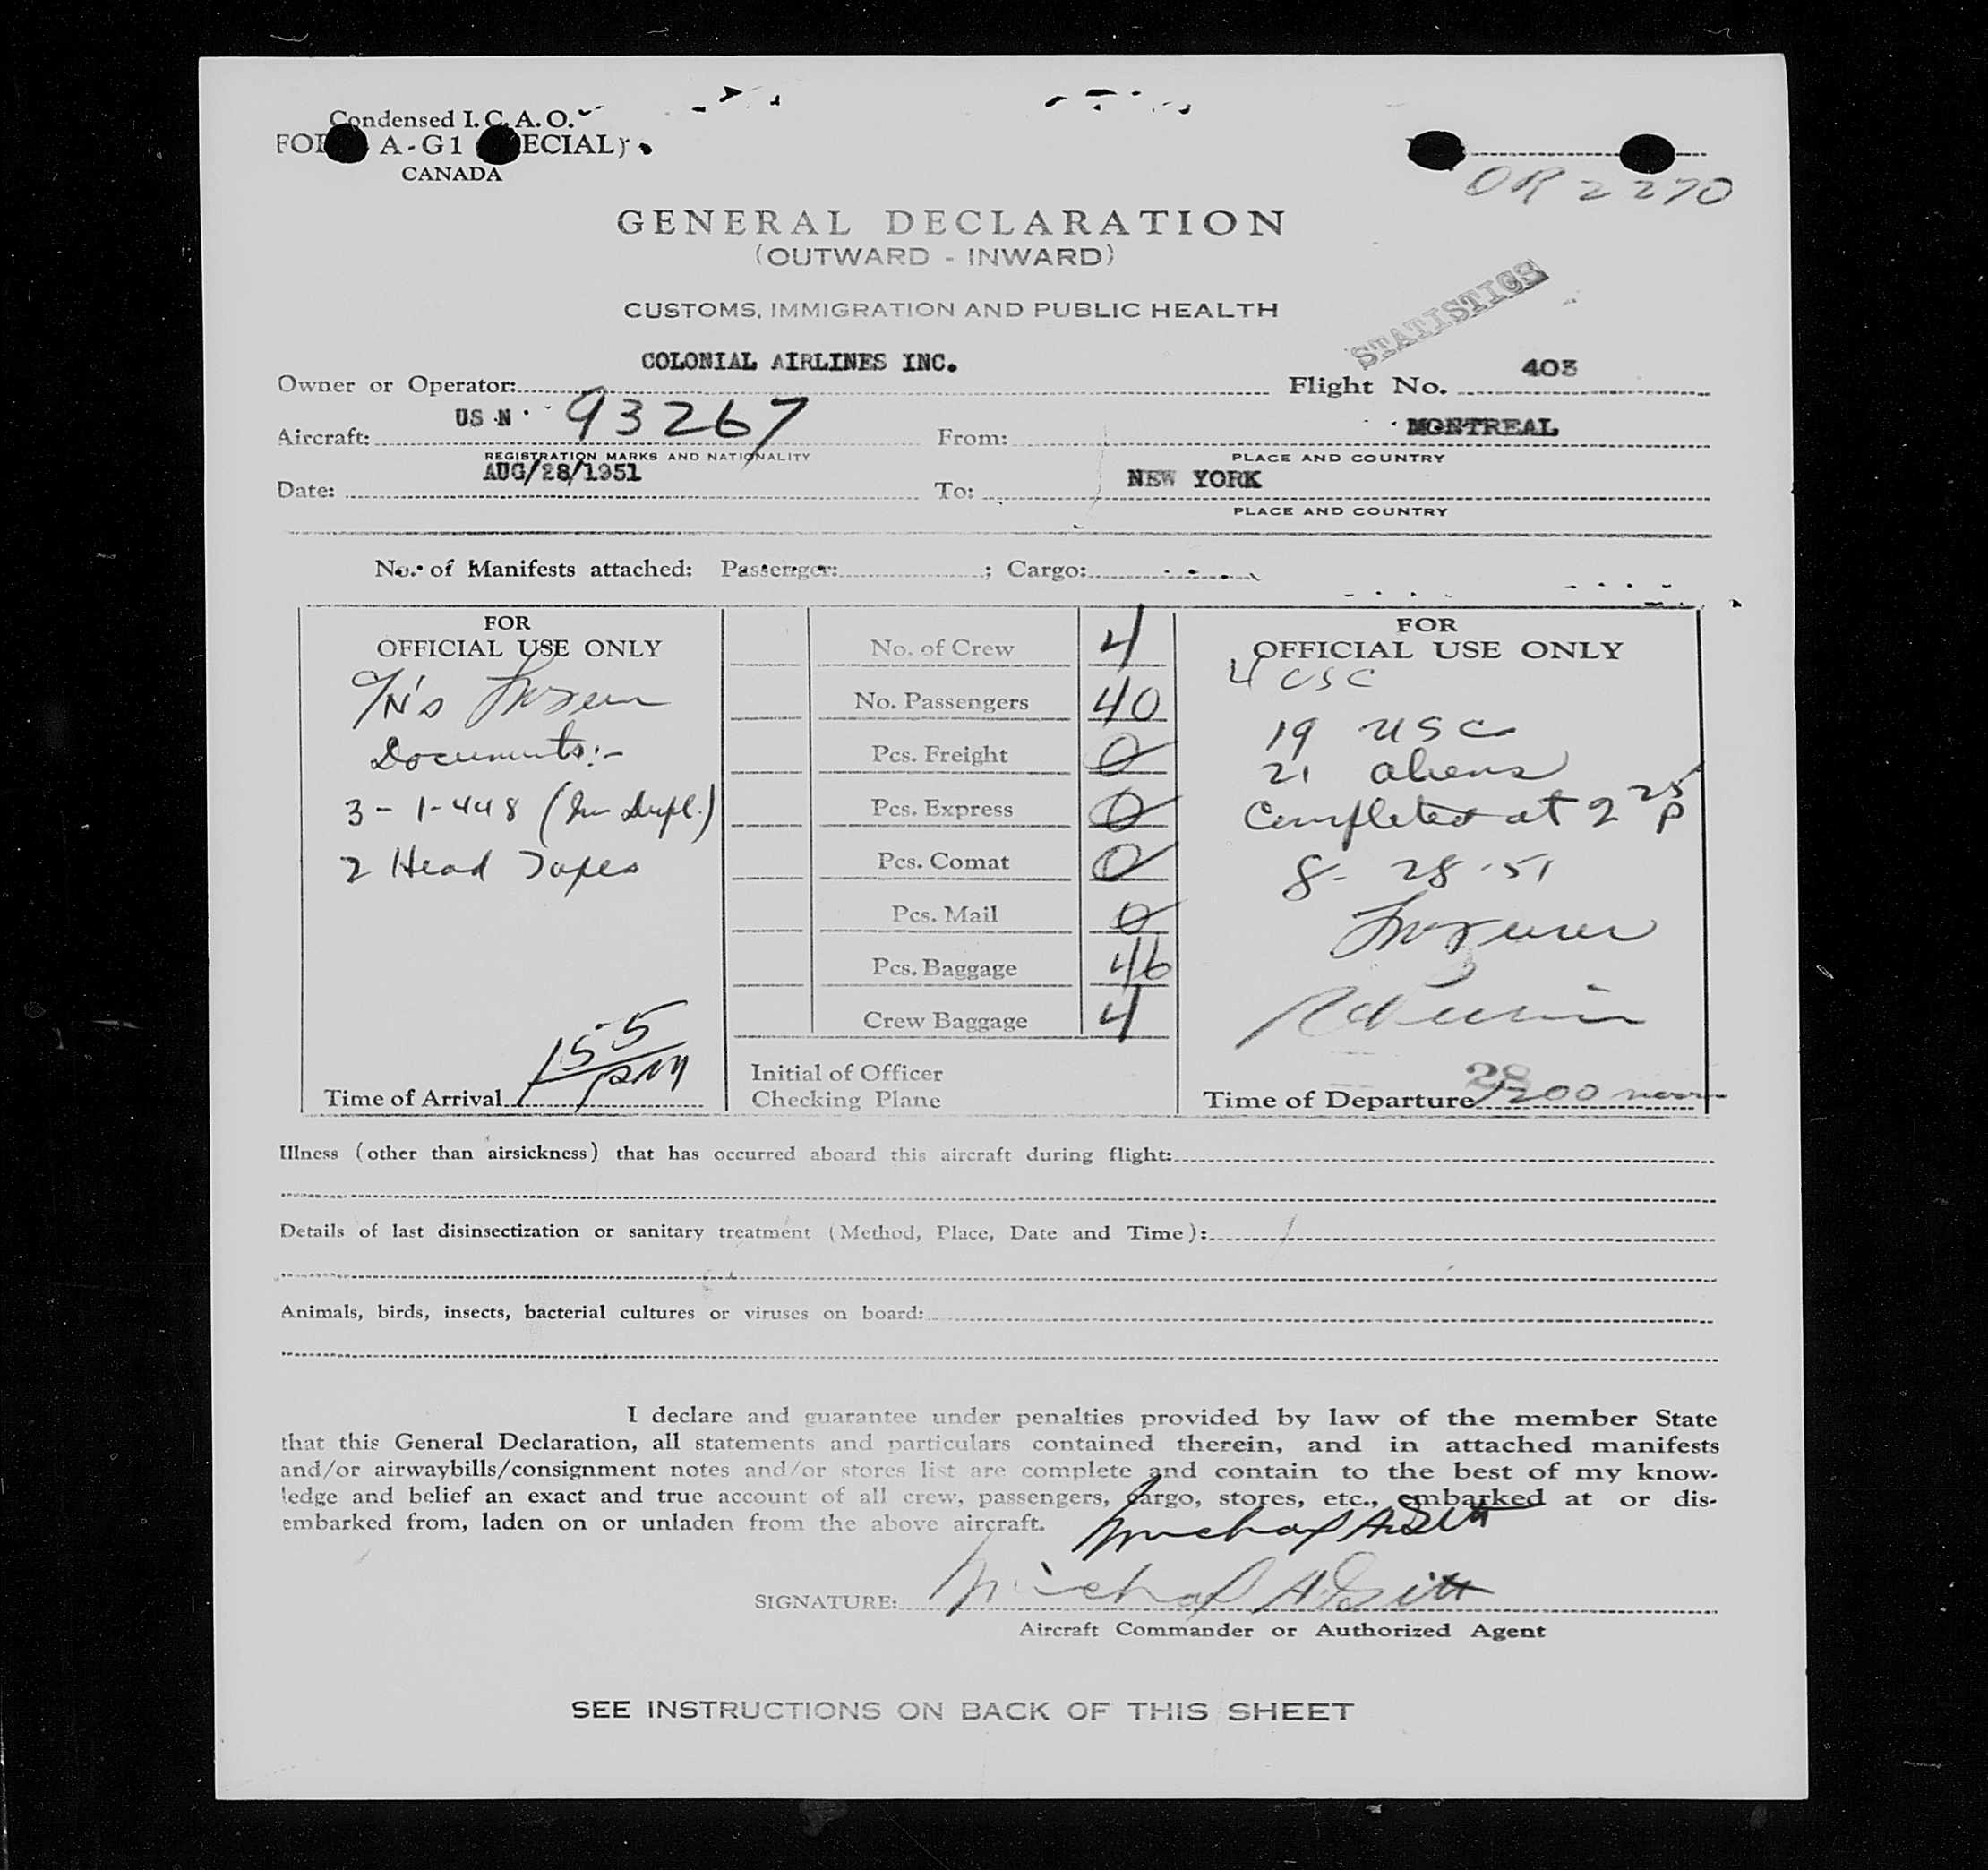 Condensed I.C.A.O.
A-G1
CANADA
OR 2270
GENERAL DECLARATION
(OUTWARD - INWARD)
CUSTOMS, IMMIGRATION AND PUBLIC HEALTH
STATISTICS
COLONIAL AIRLINES INC.
403
Owner or Operator: Flight No.
US N 93267
MONTREAL
Aircraft: From:
REGISTRATION MARKS AND NATIONALITY PLACE AND COUNTRY
AUG/28/1951
NEW YORK
Date: To:
PLACE AND COUNTRY
No. of Manifests attached: Passenger: ; Cargo:
FOR
OFFICIAL USE ONLY
Documents:-
3 - 1-448 (In Dupl.)
2 Head Taxes
155
PM
Time of Arrival
No. of Crew 4
No. Passengers 40
Pcs. Freight 0
Pcs. Express 0
Pcs. Comat 0
Pcs. Mail 0
Pcs. Baggage 46
Crew Baggage 4
Initial of Officer
Checking Plane
FOR
OFFICIAL USE ONLY
4 USC
19 USC
21 aliens
Completed at 2 25 P
8-28-51
28
Time of Departure 1200 noon
Illness (other than airsickness) that has occurred aboard this aircraft during flight:
Details of last disinsectization or sanitary treatment (Method, Place, Date and Time):
Animals, birds, insects, bacterial cultures or viruses on board:
I declare and guarantee under penalties provided by law of the member State
that this General Declaration, all statements and particulars contained therein, and in attached manifests
and/or airwaybills/consignment notes and/or stores list are complete and contain to the best of my know-
ledge and belief an exact and true account of all crew, passengers, cargo, stores, etc., embarked at or dis-
embarked from, laden on or unladen from the above aircraft.
SIGNATURE:
Aircraft Commander or Authorized Agent
SEE INSTRUCTIONS ON BACK OF THIS SHEET